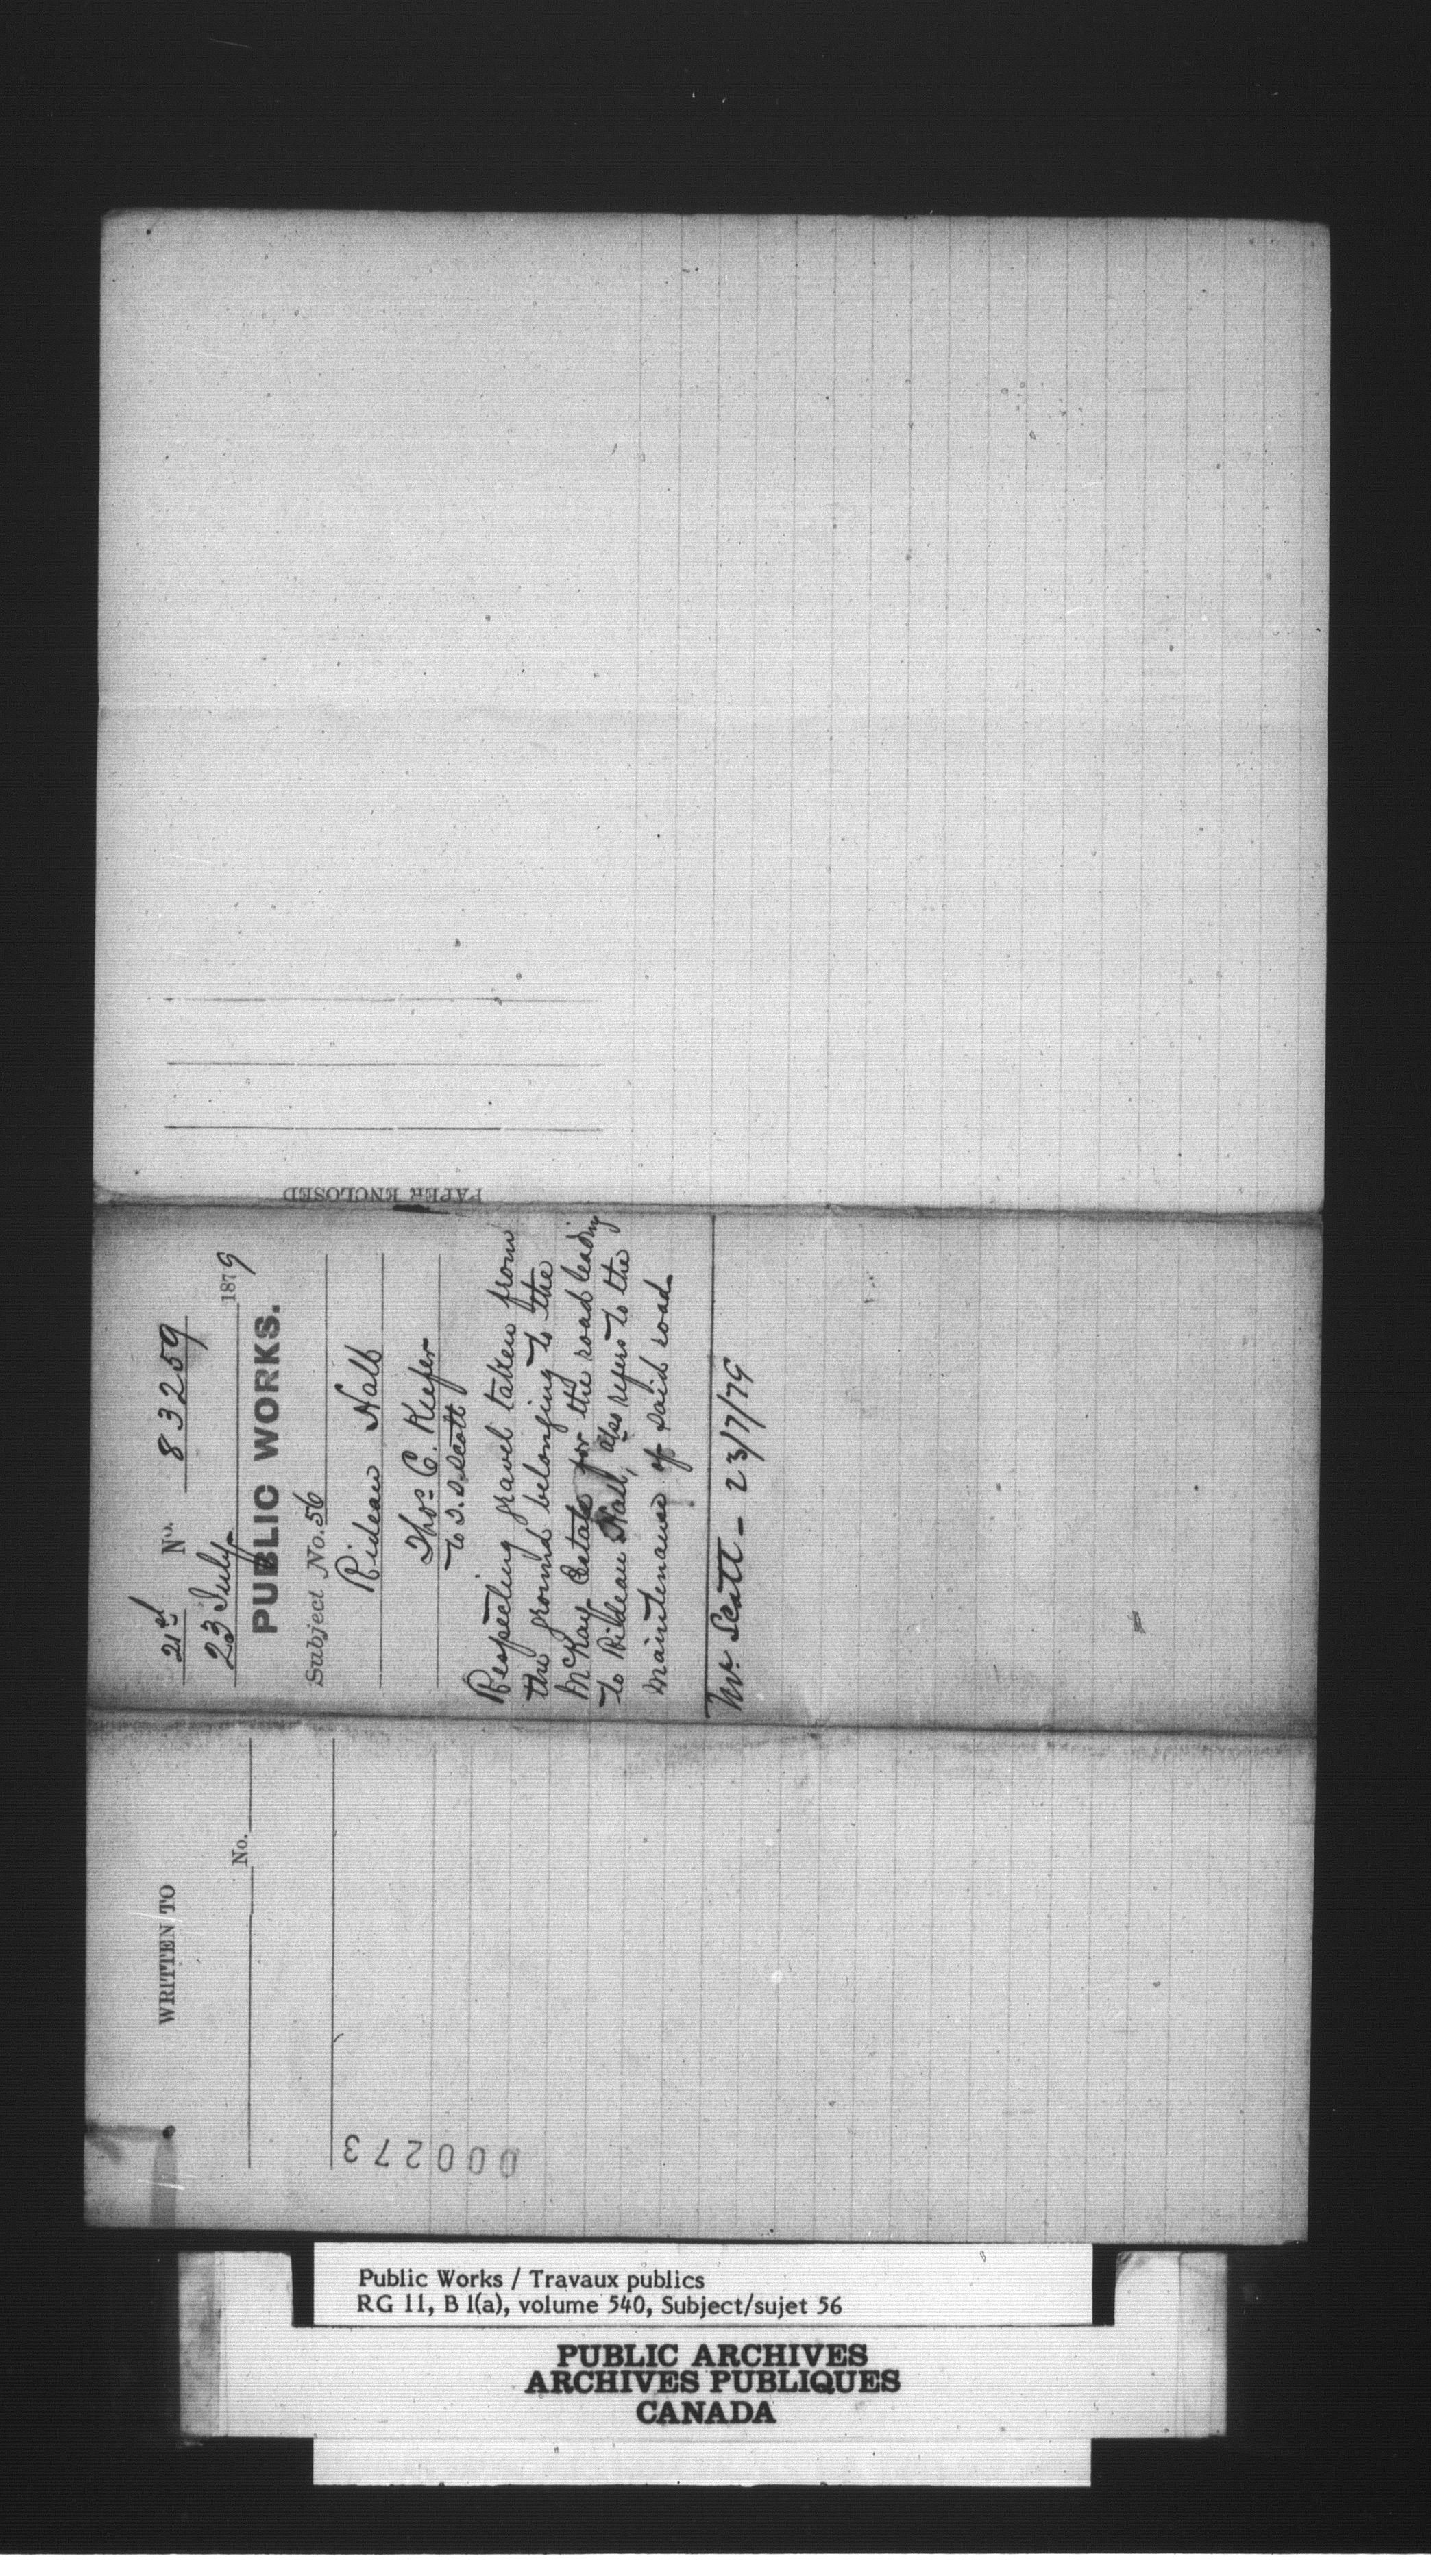 PAPER ENCLOSED
21st No. 83259
23 July 1879
PUBLIC WORKS.
Subject No. 56
Rideau Hall
Thos C. Keefer
to T. S. Scott
Respecting gravel taken from
the ground belonging to the
McKay Estate for the road leading
to Rideau Hall, also refers to the
maintenance of said road
Mr. Scott - 23/7/79
WRITTEN TO
No.
000273
Public Works / Travaux publics
RG 11, B 1(a), volume 540, Subject/sujet 56
PUBLIC ARCHIVES
ARCHIVES PUBLIQUES
CANADA